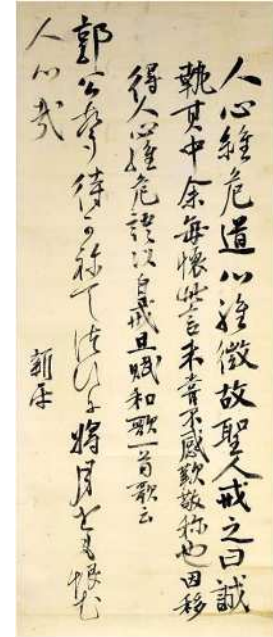 人心雖危道心雖微故聖人戒之曰誠
執其中余毎懐此言未嘗不感歎敬称也因移
得人心雖危語以自戒且賦和歌一首歌云
郭公聲待可祢て月を恨む
人心哉
新平